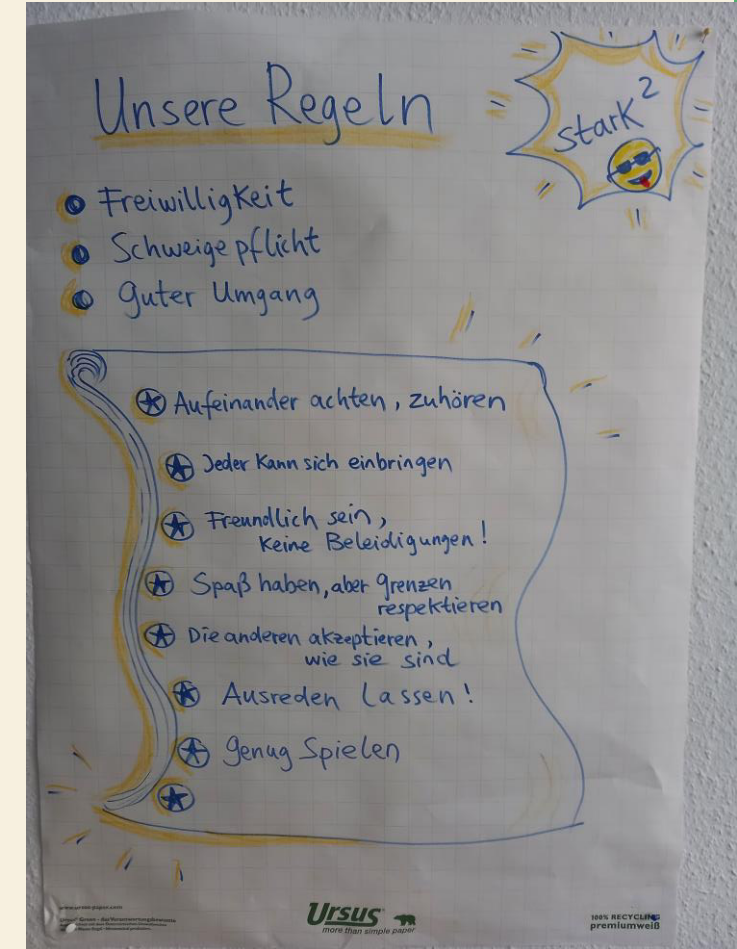 Unsere Regeln
stark²
Freiwilligkeit
Schweigepflicht
guter Umgang
Aufeinander achten, zuhören
Jeder kann sich einbringen
Freundlich sein,
keine Beleidigungen!
Spaß haben, aber grenzen
respektieren
Die anderen akzeptieren,
wie sie sind
Ausreden lassen!
genug Spielen
Ursus
more than simple paper
100% RECYCLING
premiumweiß